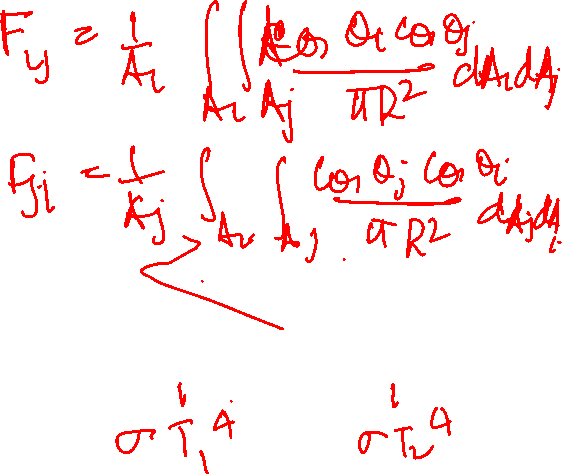 F_ij = 1/A_i ∫_{A_i} ∫_{A_j} cos θ_i cos θ_j / πR² dA_i dA_j
F_ji = 1/A_j ∫_{A_i} ∫_{A_j} cos θ_j cos θ_i / πR² dA_j dA_i
σ T_1^4 σ T_2^4